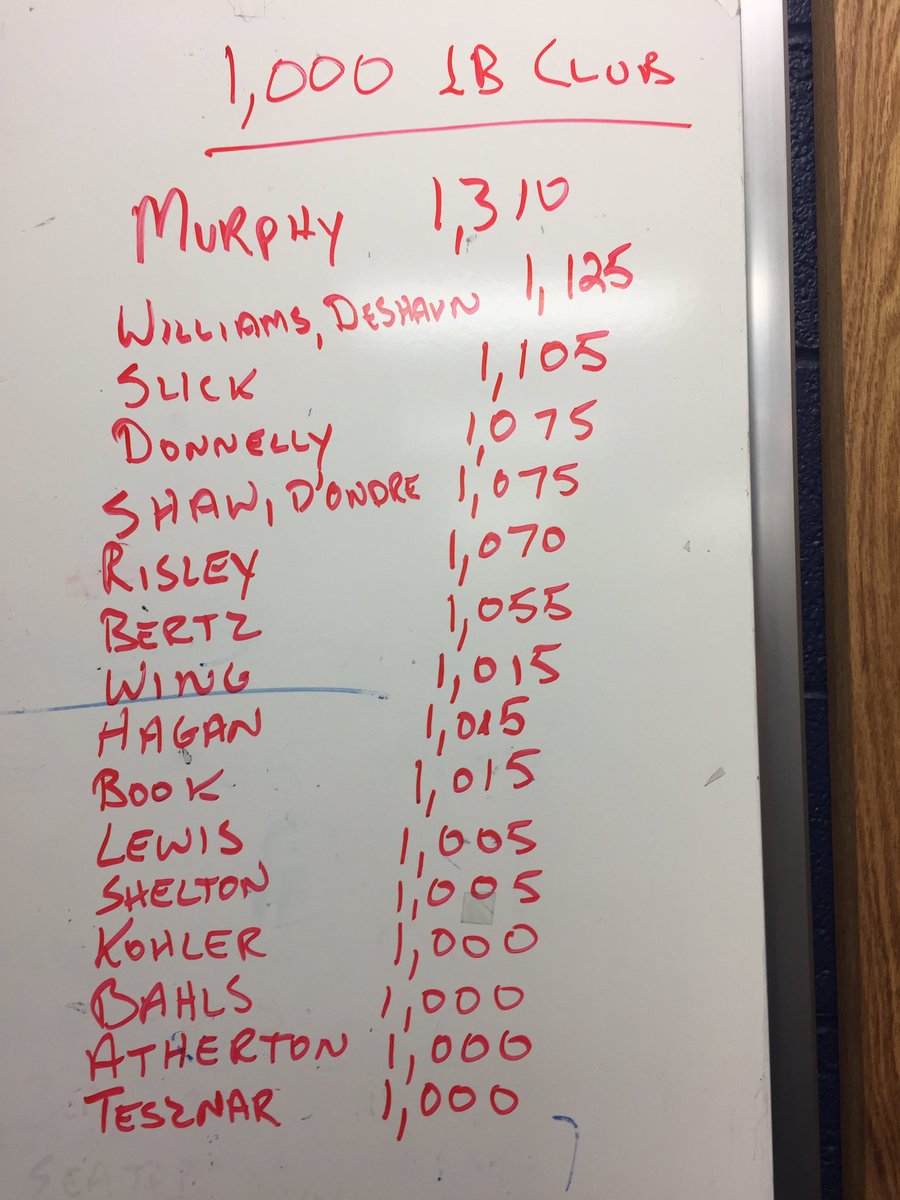 1,000 LB CLUB
MURPHY 1,310
WILLIAMS, DESHAUN 1,125
SLICK 1,105
DONNELLY 1,075
SHAW, D'ONDRE 1,075
RISLEY 1,070
BERTZ 1,055
WING 1,015
HAGAN 1,015
BOOK 1,015
LEWIS 1,005
SHELTON 1,005
KOHLER 1,000
BAHLS 1,000
ATHERTON 1,000
TESZNAR 1,000